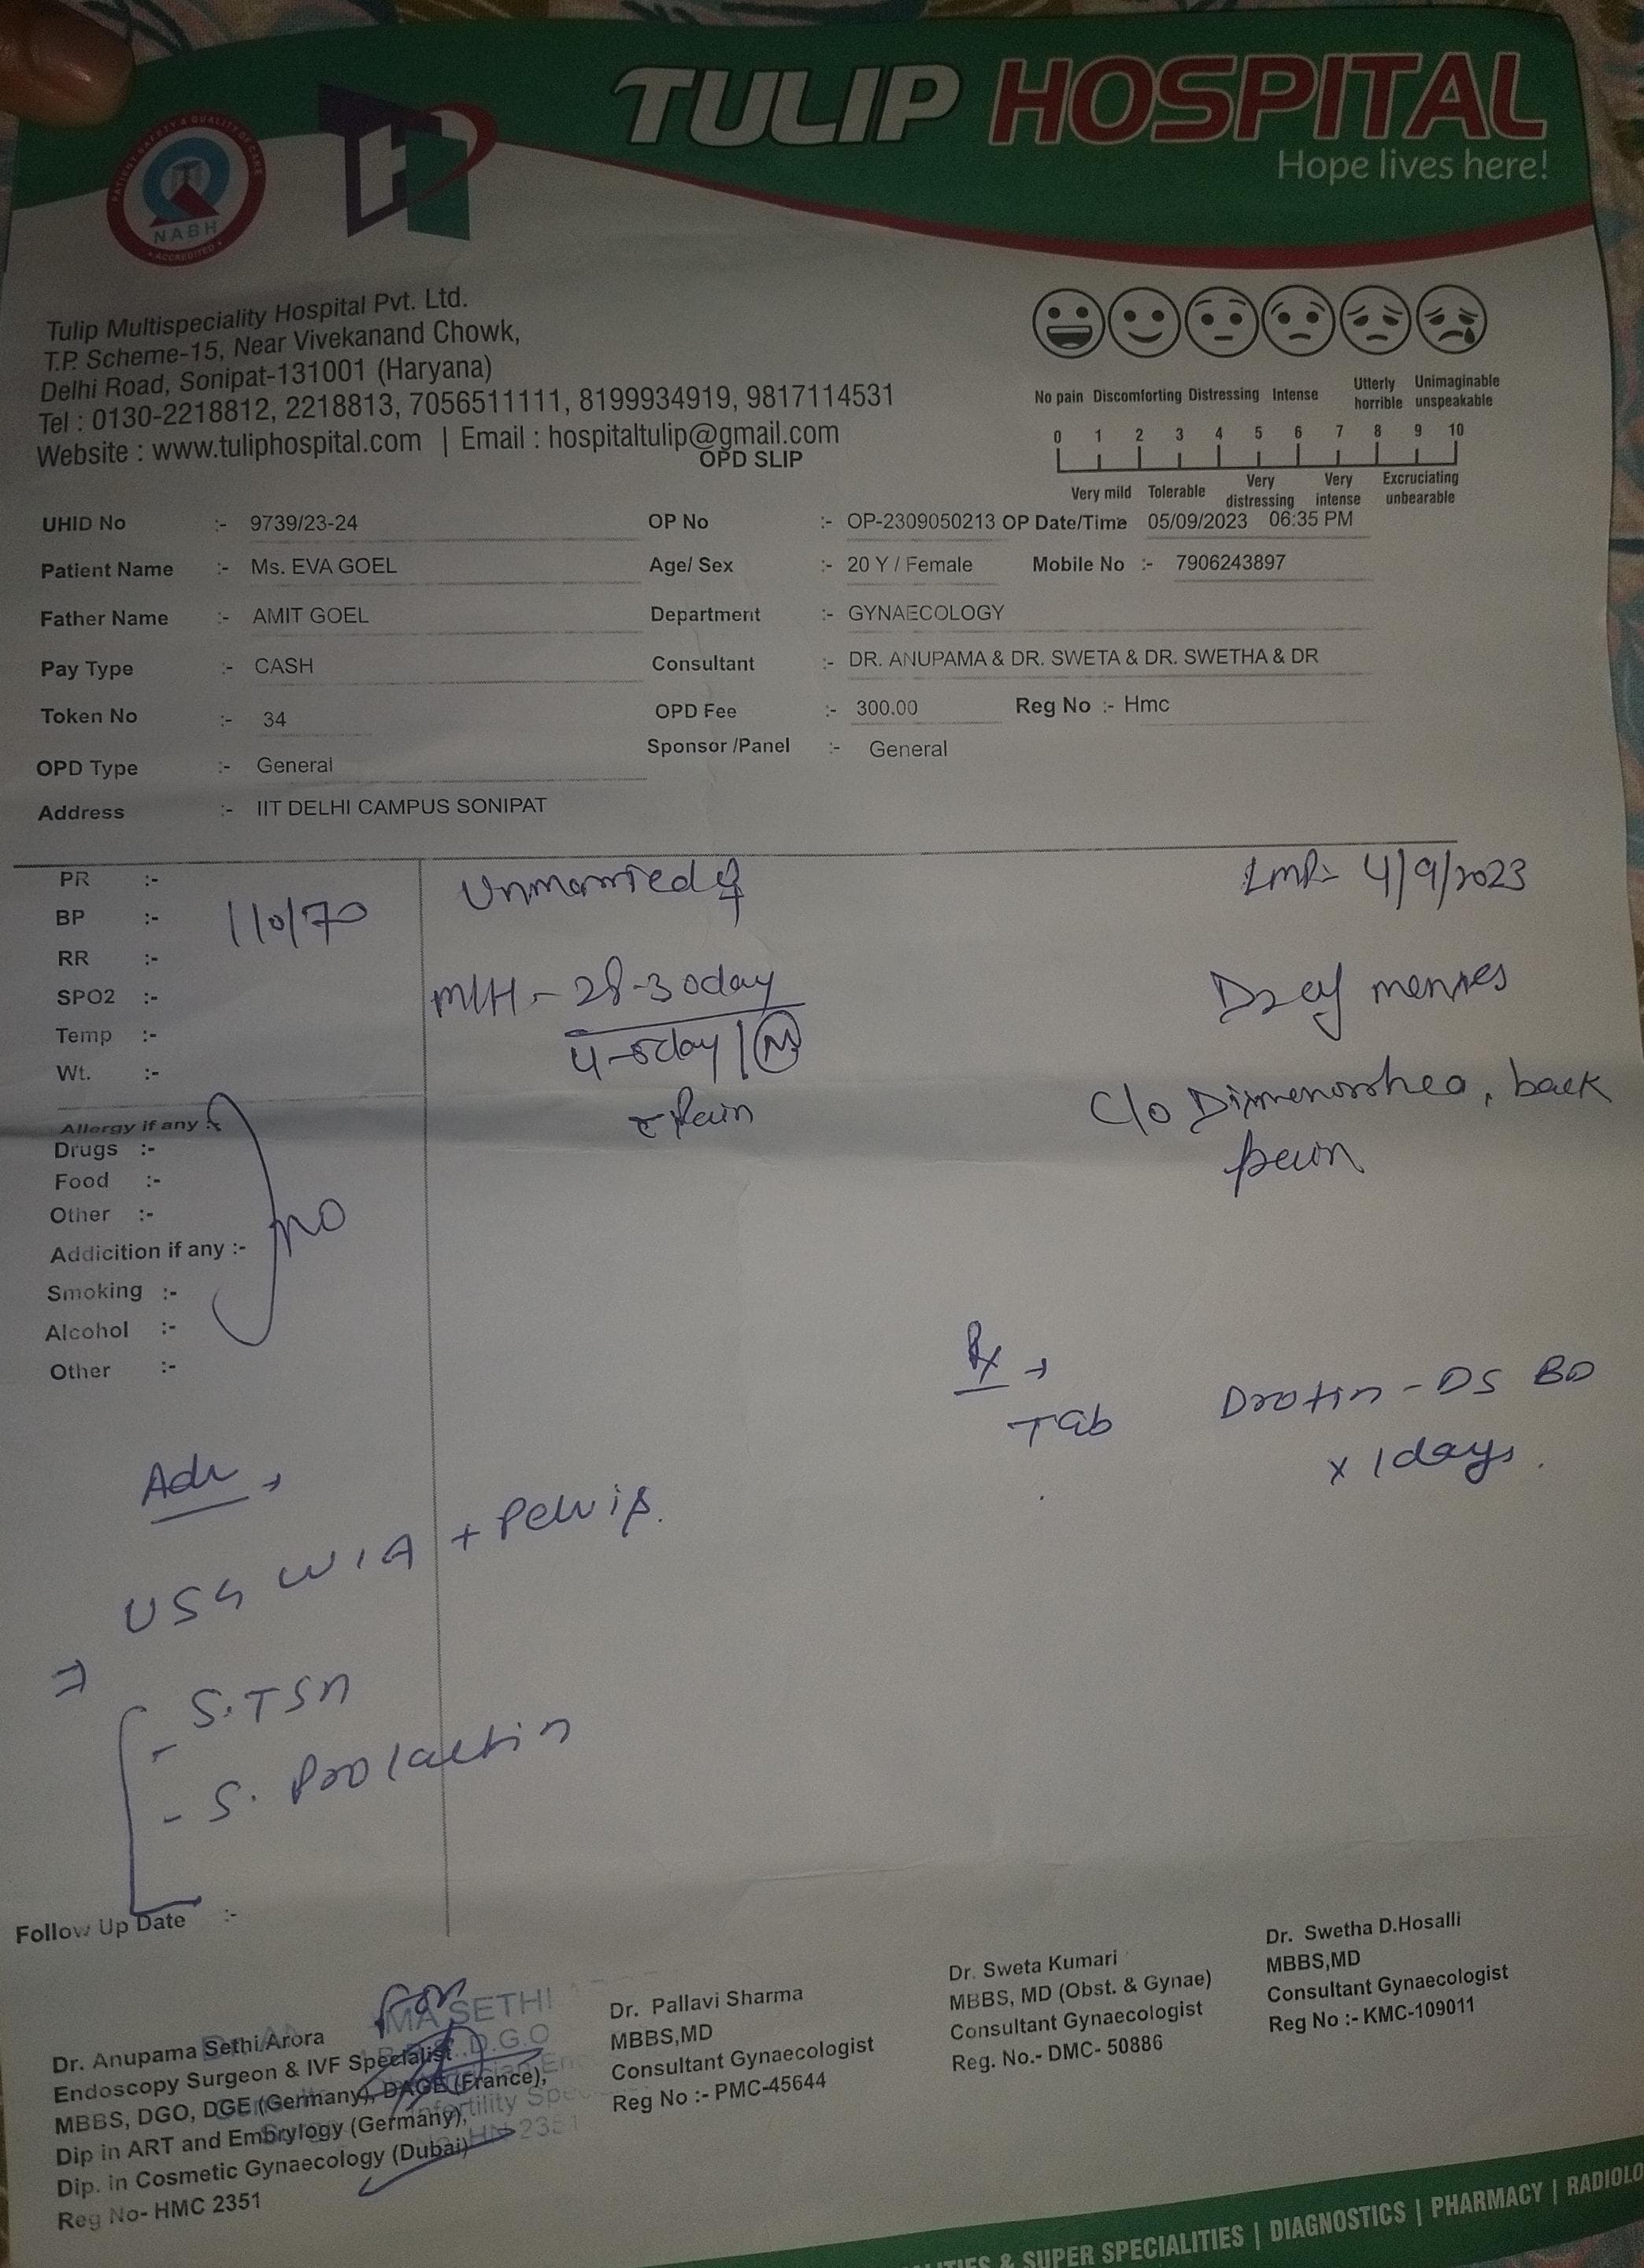 TULIP HOSPITAL
Hope lives here!
PATIENT SAFETY & QUALITY OF CARE
NABH
ACCREDITED
Tulip Multispeciality Hospital Pvt. Ltd.
T.P. Scheme-15, Near Vivekanand Chowk,
Delhi Road, Sonipat-131001 (Haryana)
Tel : 0130-2218812, 2218813, 7056511111, 8199934919, 9817114531
Website : www.tuliphospital.com | Email : hospitaltulip@gmail.com
No pain Discomforting Distressing Intense Utterly horrible Unimaginable unspeakable
0 1 2 3 4 5 6 7 8 9 10
Very mild Tolerable Very distressing Very intense Excruciating unbearable
OPD SLIP
UHID No :- 9739/23-24 OP No :- OP-2309050213 OP Date/Time 05/09/2023 06:35 PM
Patient Name :- Ms. EVA GOEL Age/ Sex :- 20 Y / Female Mobile No :- 7906243897
Father Name :- AMIT GOEL Department :- GYNAECOLOGY
Pay Type :- CASH Consultant :- DR. ANUPAMA & DR. SWETA & DR. SWETHA & DR
Token No :- 34 OPD Fee :- 300.00 Reg No :- Hmc
OPD Type :- General Sponsor /Panel :- General
Address :- IIT DELHI CAMPUS SONIPAT
PR :-
BP :- 110/70
RR :-
SPO2 :-
Temp :-
Wt. :-
Allergy if any :-
Drugs :-
Food :-
Other :-
Addicition if any :-
Smoking :-
Alcohol :-
Other :-
NO
Unmarried ♀
M/H - 28-30day
4-5day | N
c Pain
LMP- 4/9/2023
D2 of menses
C/o Dixmenorrhea, back
pain
Rx →
Tab Drotin-DS BD
x 1days.
Adv →
USG W/A + Pelvis.
⇒
- S.TSH
- S. Prolactin
Follow Up Date :-
for
Dr. Anupama Sethi Arora
Endoscopy Surgeon & IVF Specialist
MBBS, DGO, DGE (Germany), DAGE (France),
Dip in ART and Embrylogy (Germany),
Dip. in Cosmetic Gynaecology (Dubai)
Reg No- HMC 2351
MA SETHI
D.G.O
Dr. Pallavi Sharma
MBBS,MD
Consultant Gynaecologist
Reg No :- PMC-45644
Dr. Sweta Kumari
MBBS, MD (Obst. & Gynae)
Consultant Gynaecologist
Reg. No.- DMC- 50886
Dr. Swetha D.Hosalli
MBBS,MD
Consultant Gynaecologist
Reg No :- KMC-109011
& SUPER SPECIALITIES | DIAGNOSTICS | PHARMACY |